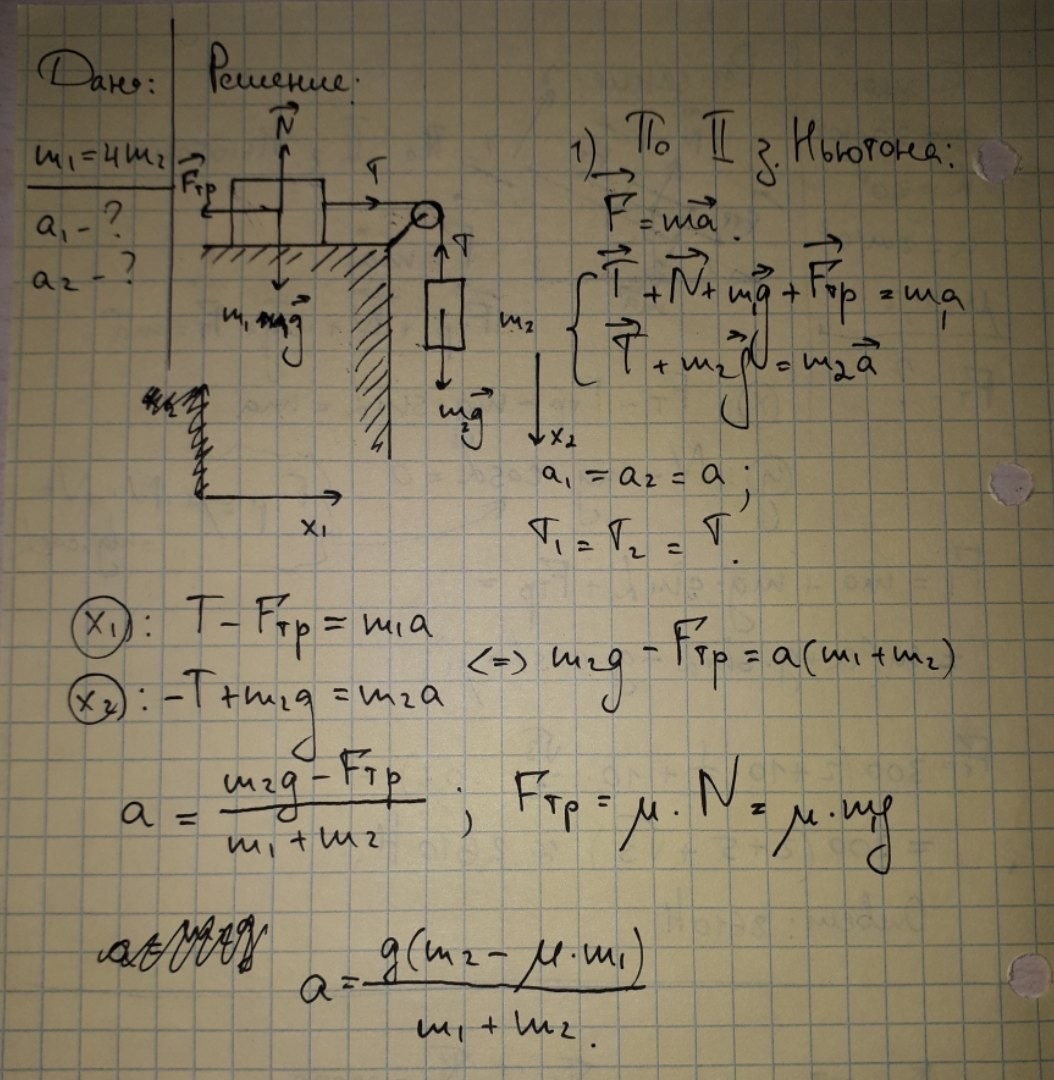 Дано:
Решение:
m₁ = 4m₂
a₁ - ?
a₂ - ?
N⃗
F⃗тр
T
T
m₁g⃗
m₂
m₂g⃗
x₁
x₂
1) По II з. Ньютона:
F⃗ = ma⃗.
T⃗ + N⃗ + m₁g⃗ + F⃗тр = ma₁
T⃗ + m₂g⃗ = m₂a⃗
a₁ = a₂ = a ;
T₁ = T₂ = T.
x₁: T - Fтр = m₁a
x₂: -T + m₂g = m₂a
<=> m₂g - Fтр = a(m₁ + m₂)
a = (m₂g - Fтр) / (m₁ + m₂) ; Fтр = μ · N = μ · m₁g
a = g(m₂ - μ · m₁) / (m₁ + m₂).